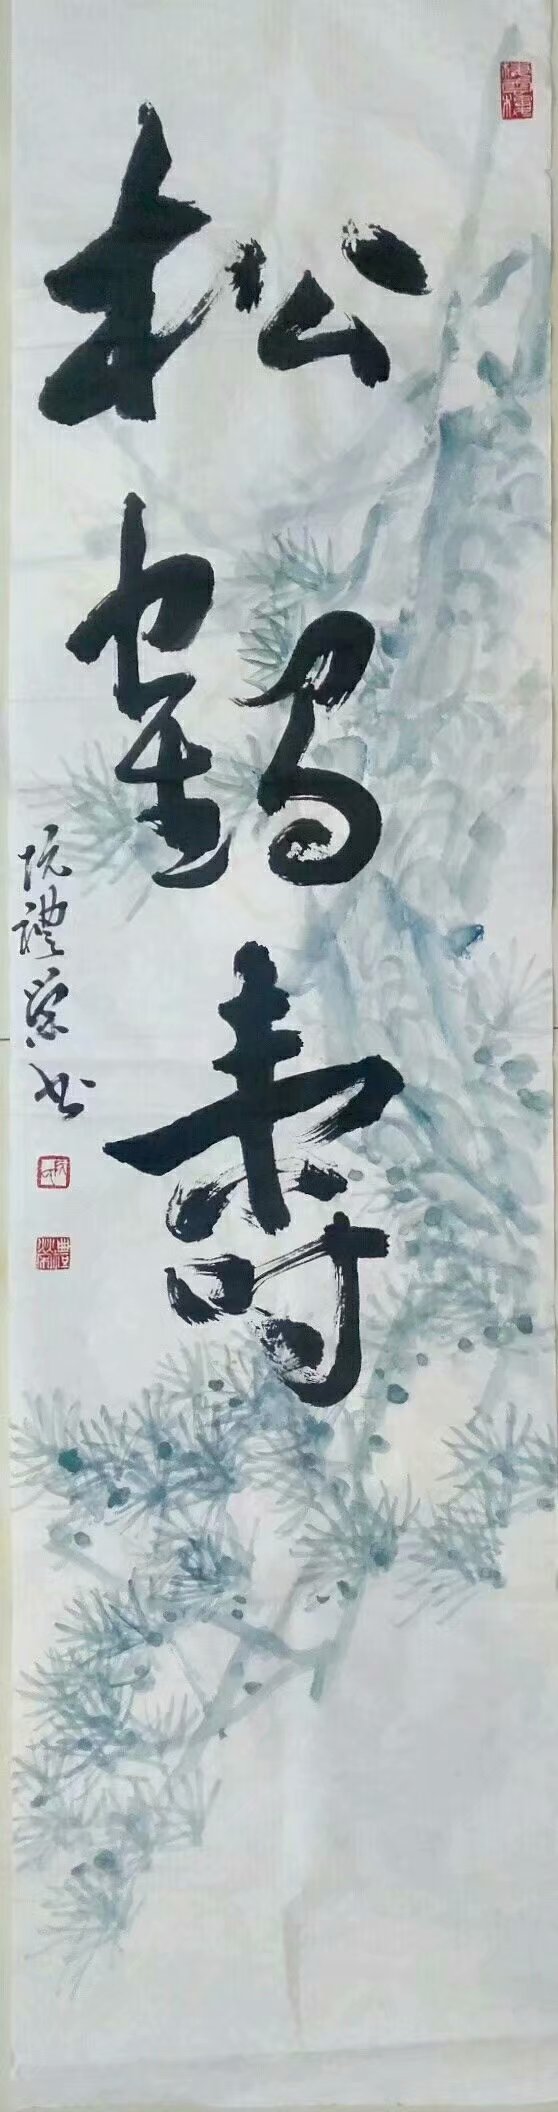 松鹤寿
阮礼荣书